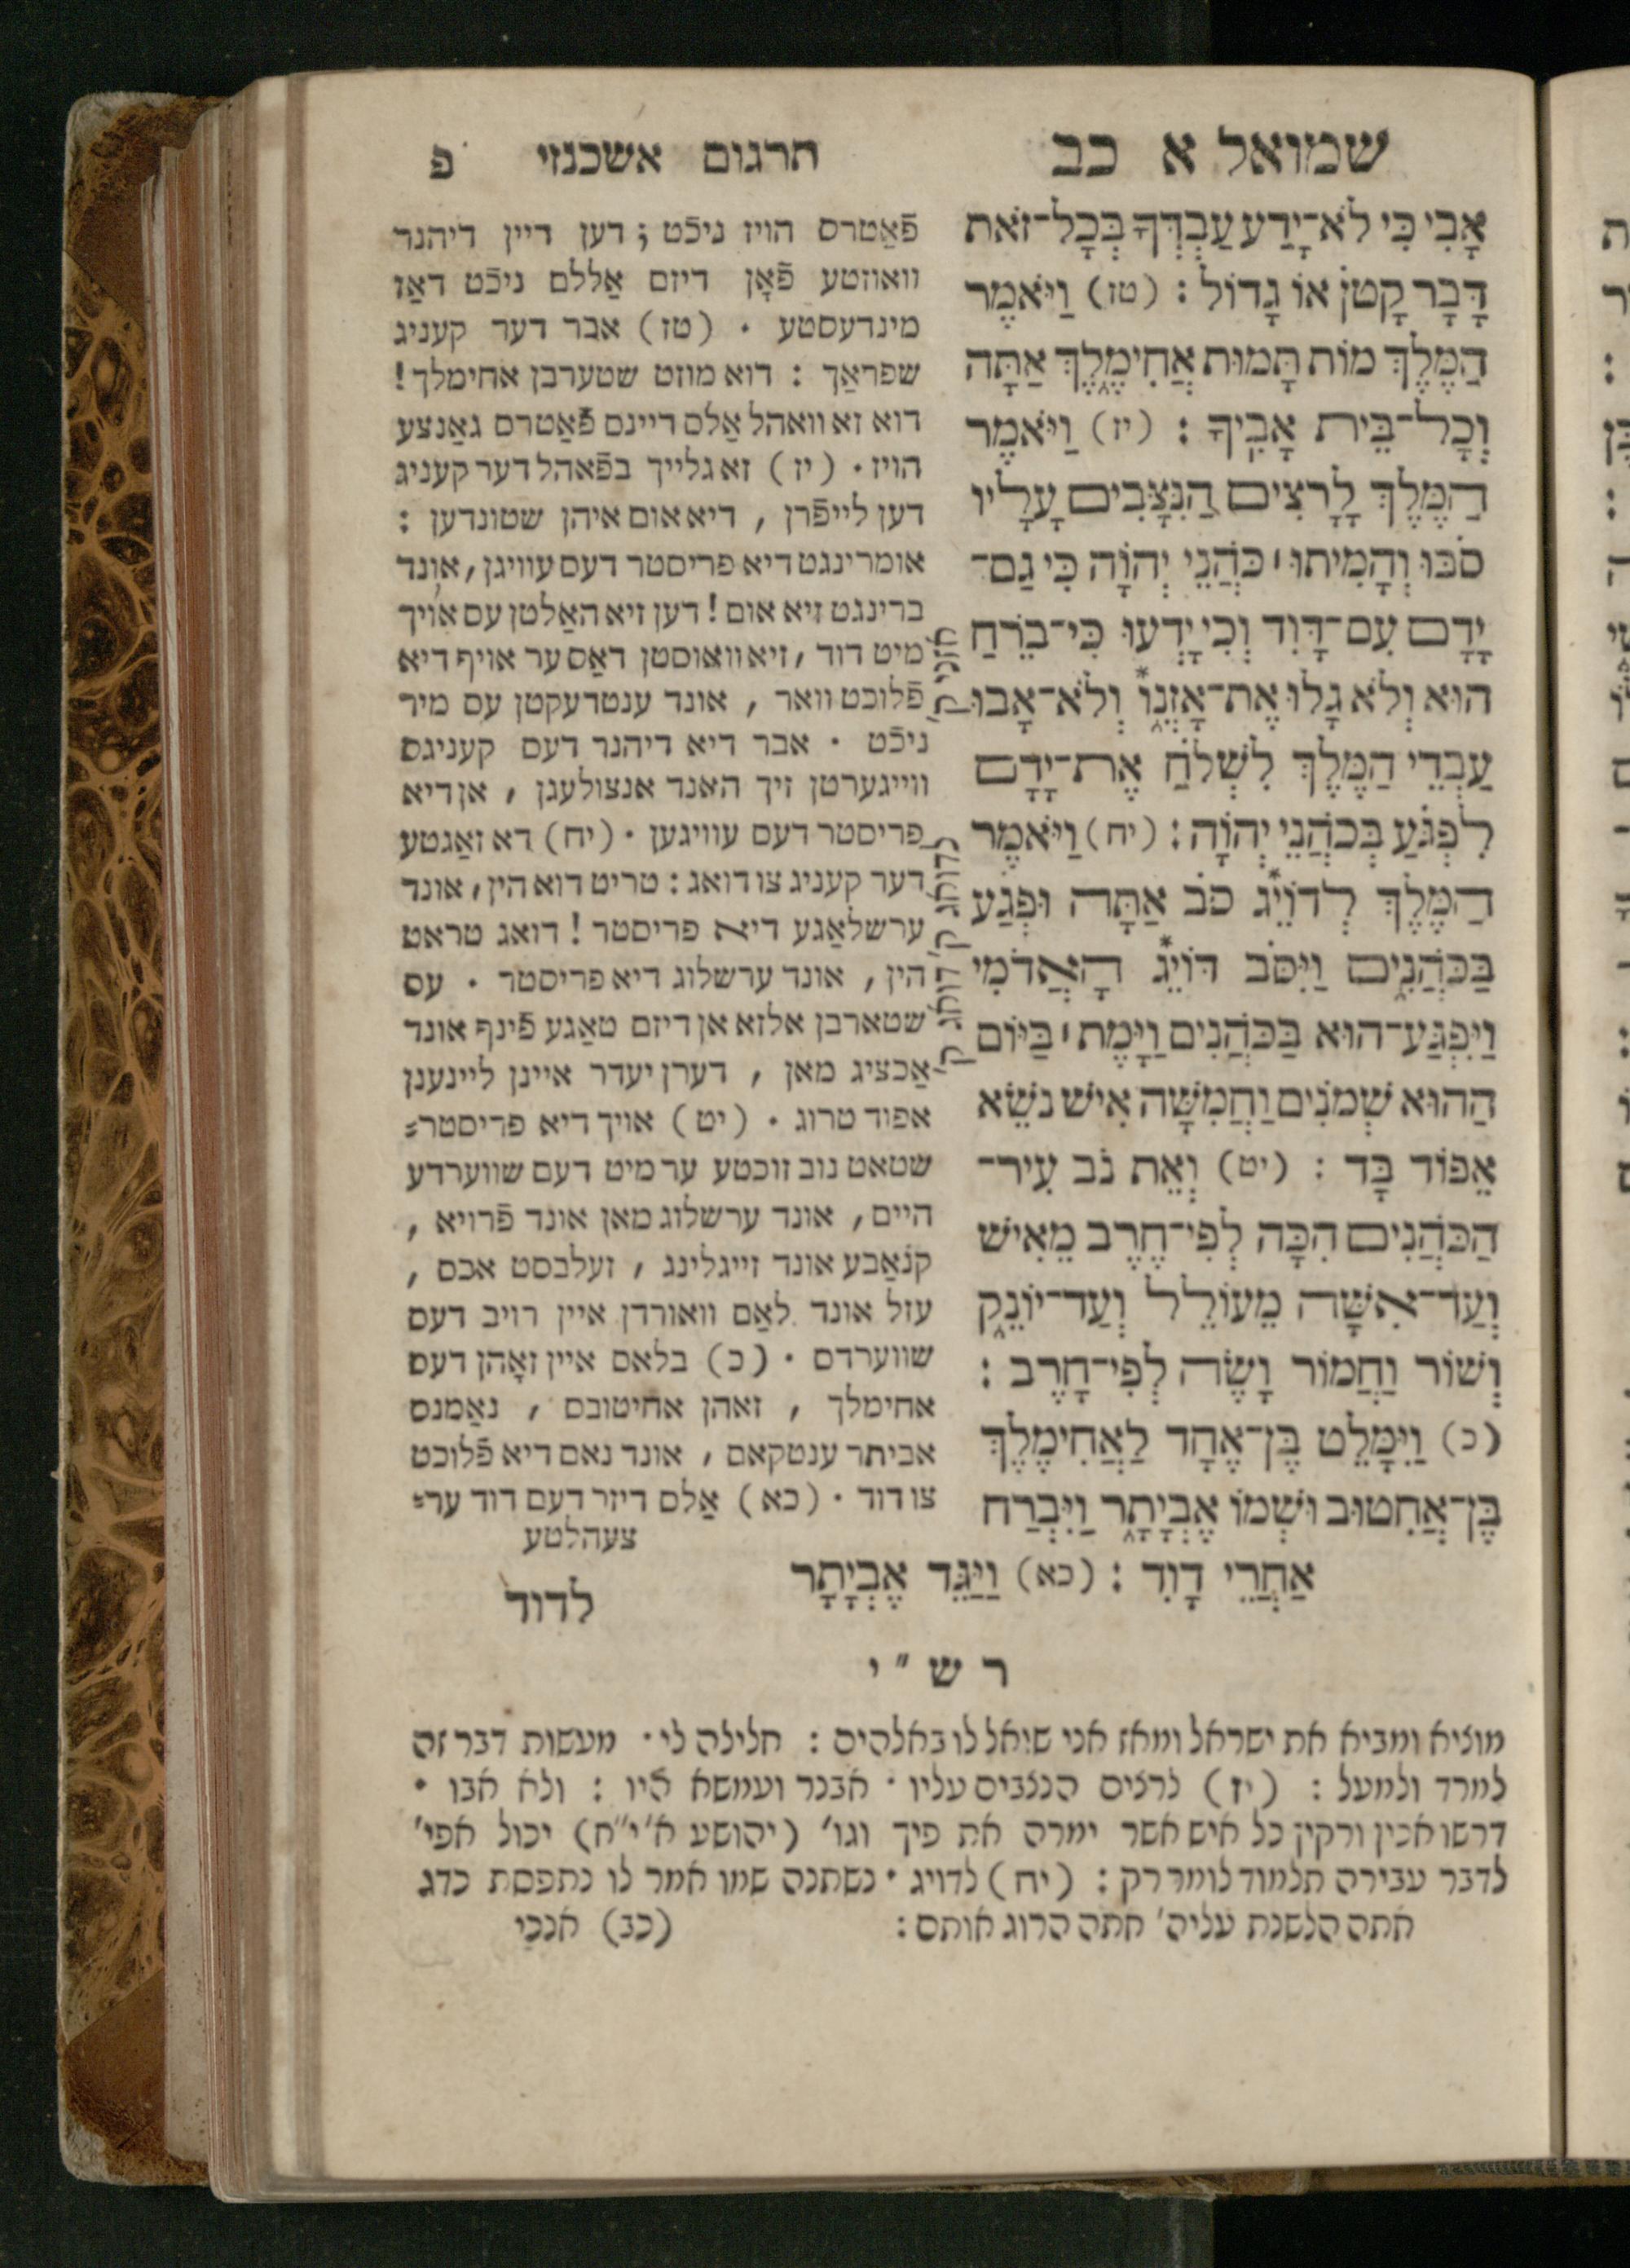 שמואל א כב
אָבִי כִּי לֹא־יָדַע עַבְדְּךָ בְּכָל־זֹאת
דָּבָר קָטֹן אוֹ גָדוֹל : (טז) וַיֹּאמֶר
הַמֶּלֶךְ מוֹת תָּמוּת אֲחִימֶלֶךְ אַתָּה
וְכָל־בֵּית אָבִיךָ : (יז) וַיֹּאמֶר
הַמֶּלֶךְ לָרָצִים הַנִּצָּבִים עָלָיו
סֹבּוּ וְהָמִיתוּ ׀ כֹּהֲנֵי יְהוָֹה כִּי גַם־
יָדָם עִם־דָּוִד וְכִי יָדְעוּ כִּי־בֹרֵחַ
הוּא וְלֹא גָלוּ אֶת־אָזְנֽוֹ* וְלֹא־אָבוּ
עַבְדֵי הַמֶּלֶךְ לִשְׁלֹחַ אֶת־יָדָם
לִפְגֹּעַ בְּכֹהֲנֵי יְהוָֹה : (יח) וַיֹּאמֶר
הַמֶּלֶךְ לְדוֹיֵג* סֹב אַתָּה וּפְגַע
בַּכֹּהֲנִים וַיִּסֹּב דּוֹיֵג* הָאֲדֹמִי
וַיִּפְגַּע־הוּא בַּכֹּהֲנִים וַיָּמֶת ׀ בַּיּוֹם
הַהוּא שְׁמֹנִים וַחֲמִשָּׁה אִישׁ נֹשֵׂא
אֵפוֹד בָּד : (יט) וְאֵת נֹב עִיר־
הַכֹּהֲנִים הִכָּה לְפִי־חֶרֶב מֵאִישׁ
וְעַד־אִשָּׁה מֵעוֹלֵל וְעַד־יוֹנֵק
וְשׁוֹר וַחֲמוֹר וָשֶׂה לְפִי־חָרֶב :
(כ) וַיִּמָּלֵט בֶּן־אֶחָד לַאֲחִימֶלֶךְ
בֶּן־אֲחִטוּב וּשְׁמוֹ אֶבְיָתָר וַיִּבְרַח
אַחֲרֵי דָוִד : (כא) וַיַּגֵּד אֶבְיָתָר
לדוד
אזני ק'
לדואג ק' דואג ק'
תרגום אשכנזי פ
פֿאַטרס הויז ניכֿט ; דען דיין דיהנר
וואוזטע פֿאָן דיזם אַללם ניכֿט דאַז
מינדעסטע . (טז) אבר דער קעניג
שפראַך : דוא מוזט שטערבן אחימלך !
דוא זא וואהל אַלס דיינס פֿאַטרס גאַנצע
הויז . (יז) זא גלייך בפֿאהל דער קעניג
דען לייפֿרן , דיא אום איהן שטונדען :
אומרינגט דיא פריסטר דעס עוויגן , אונד
ברינגט זיא אום ! דען זיא האַלטן עס אויך
מיט דוד , זיא וואוסטן דאַס ער אויף דיא
פֿלוכט וואר , אונד ענטדעקטן עס מיר
ניכֿט . אבר דיא דיהנר דעס קעניגס
ווייגערטן זיך האנד אנצולעגן , אן דיא
פריסטר דעס עוויגען . (יח) דא זאַגטע
דער קעניג צו דואג : טריט דוא הין , אונד
ערשלאַגע דיא פריסטר ! דואג טראט
הין , אונד ערשלוג דיא פריסטר . עס
שטארבן אלזא אן דיזם טאַגע פֿינף אונד
אַכציג מאן , דערן יעדר איינן ליינענן
אפוד טרוג . (יט) אויך דיא פריסטר=
שטאט נוב זוכטע ער מיט דעם שווערדע
היים , אונד ערשלוג מאן אונד פֿרויא ,
קנאַבע אונד זייגלינג , זעלבסט אכס ,
עזל אונד לאַם וואורדן איין רויב דעס
שווערדס . (כ) בלאס איין זאָהן דעס
אחימלך , זאהן אחיטובס , נאַמנס
אביתר ענטקאם , אונד נאם דיא פֿלוכט
צו דוד . (כא) אַלס דיזר דעם דוד ער=
צעהלטע
רש"י
מוציא ומביא את ישראל ומאז אני שואל לו באלהים : חלילה לי . מעשות דבר זה
למרד ולמעל : (יז) לרצים הנצבים עליו . אבנר ועמשא היו : ולא אבו .
דרשו אכין ורקין כל איש אשר ימרה את פיך וגו' (יהושע א' י"ח) יכול אפי'
לדבר עבירה תלמוד לומר רק : (יח) לדויג . נשתנה שמו אמר לו נתפסת כדג
אתה הלשנת עליה' אתה הרוג אותם : (כב) אנכי